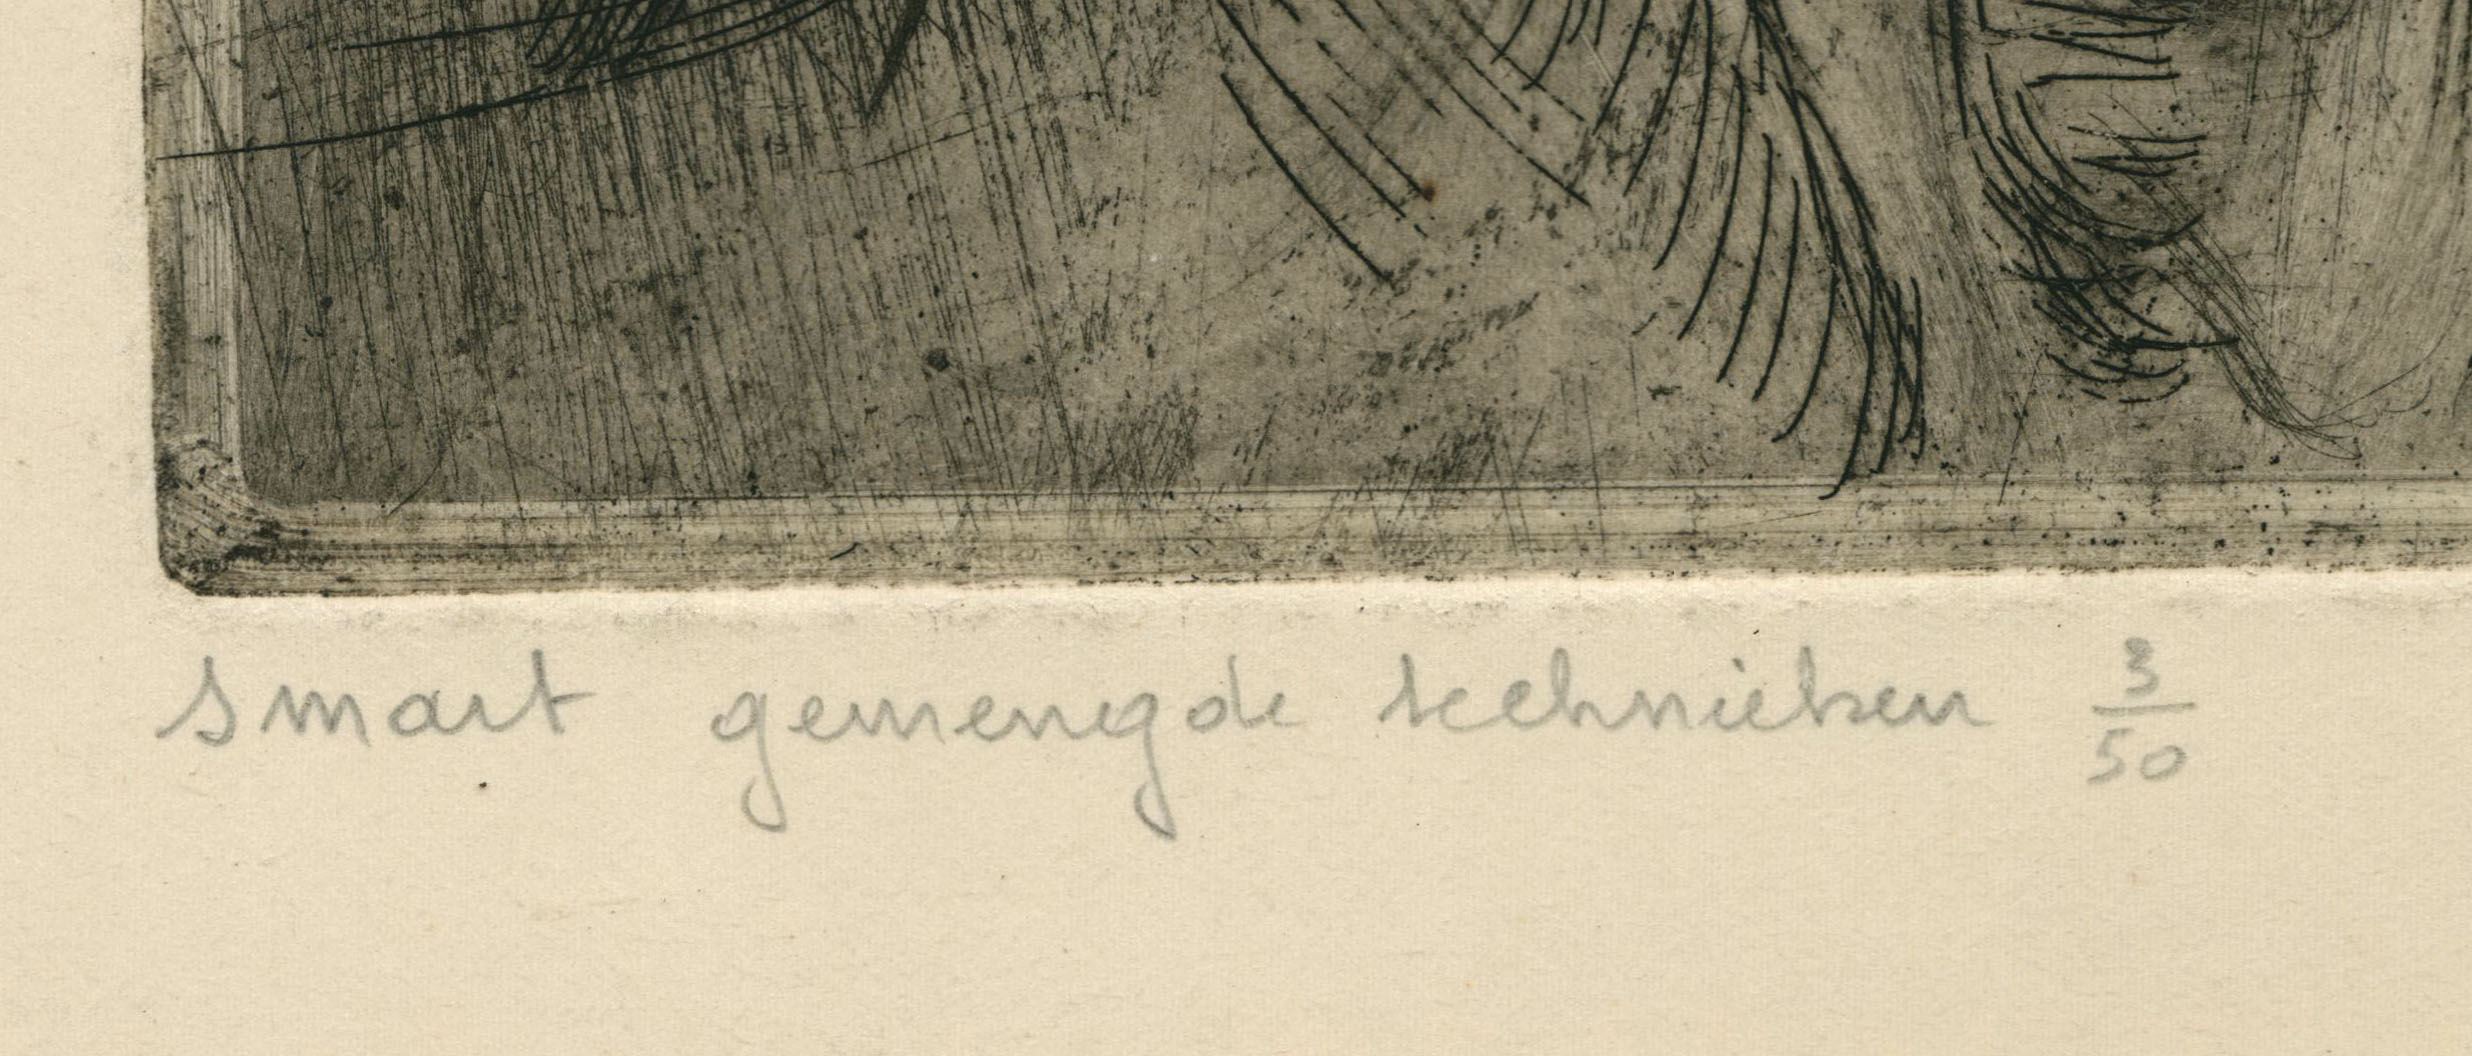 smart gemengde technieken 3/50